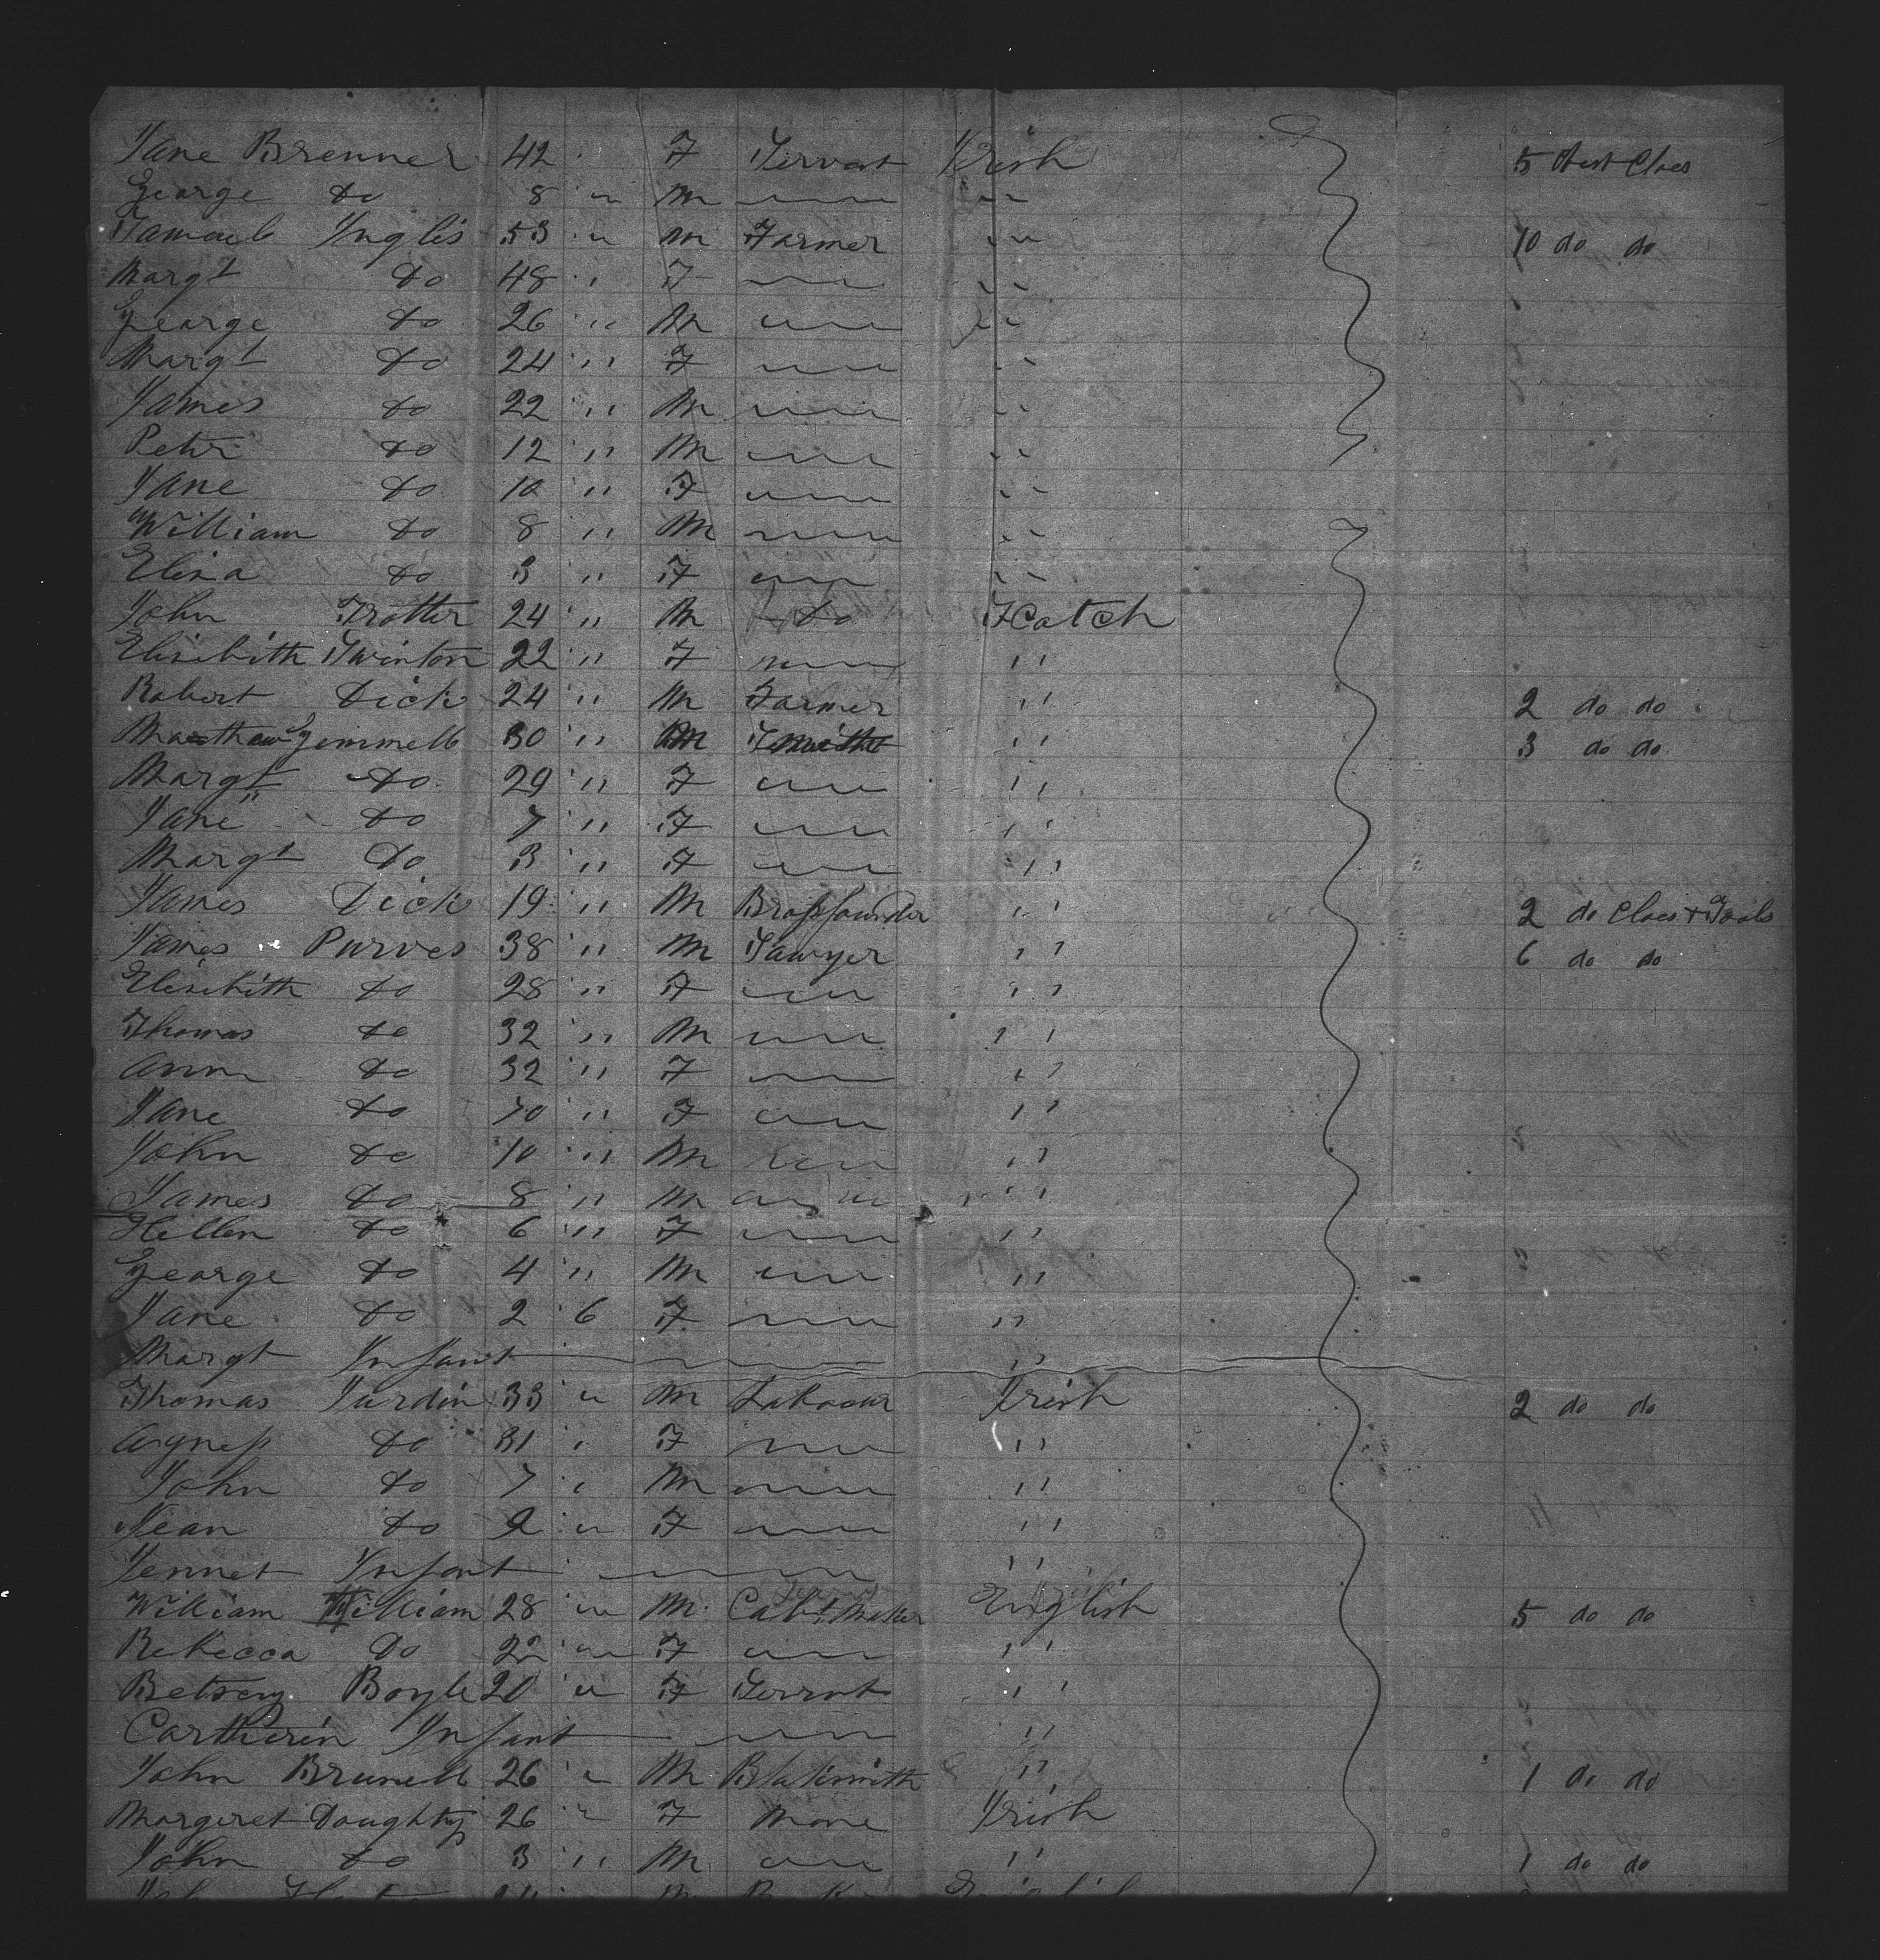 Jane Brenner 42 " F Servant Irish 5 Chest Cloes
George do 8 " M " "
Samuel Inglis 53 " M Farmer " " 10 do do
Margt do 48 " F " "
George do 26 " M " "
Margt do 24 " F " "
James do 22 " M " "
Peter do 12 " M " "
Jane do 10 " F " "
William do 8 " M " "
Eliza do 3 " F " "
John Trotter 24 " M do Scotch
Elisibith Swinton 22 " F " "
Robert Dick 24 " M Farmer " " 2 do do
Matthew Gemmell 30 " M Smith " " 3 do do
Margt do 29 " F " "
Jane do 7 " F " "
Margt do 3 " F " "
James Dick 19 " M Brassfounder " " 2 do Cloes + Tools
James Purves 38 " M Sawyer " " 6 do do
Elisibith do 28 " F " "
Thomas do 32 " M " "
Ann do 32 " F " "
Jane do 10 " F " "
John do 10 " M " "
James do 8 " M " "
Hellen do 6 " F " "
George do 4 " M " "
Jane do 2 6 F " "
Margt Infant " "
Thomas Jurdin 33 " M Labour Irish 2 do do
Agness do 31 " F " "
John do 7 " M " "
Jean do 2 " F " "
Jennet Infant " "
William William 28 " M Cabt Maker English 5 do do
Rebecca Do 22 " F " "
Betsey Boyle 20 " F Servnt " "
Cartherin Infant " "
John Brunell 26 " M Blaksmith " " 1 do do
Margeret Doughty 26 " F None Irish
John do 3 " M " " 1 do do